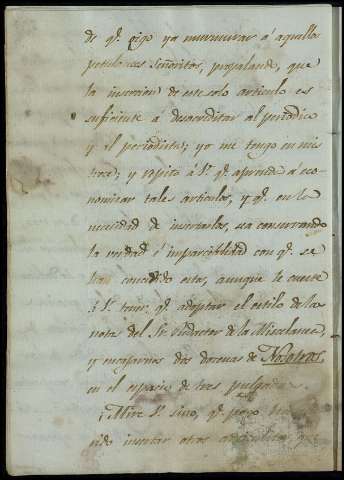 de qᵉ. oigo ya murmurar á aquellos
petulantes Señoritos, propalando, que
la insercion de este solo articulo es
suficiente á desacreditar al periodico
y el periodista; yo me tengo en mis
trece; y repito á V. qᵉ. aprenda á eco-
nomizar tales articulos, y qᵉ. en la
necesidad de insertarlos, va conservando
la verdad é imparcialidad con qᵉ. se
han concebido estos, aunque le cueste
á V. tener qᵉ. adoptar el estilo de la
nota del Sr. Redactor de la Miscelanea
y encajarnos dos docenas de Nosotros
en el espacio de tres pulgadas.
¡Mire V. sino, qᵉ. poco
rido insertar otros articulitos, qᵉ